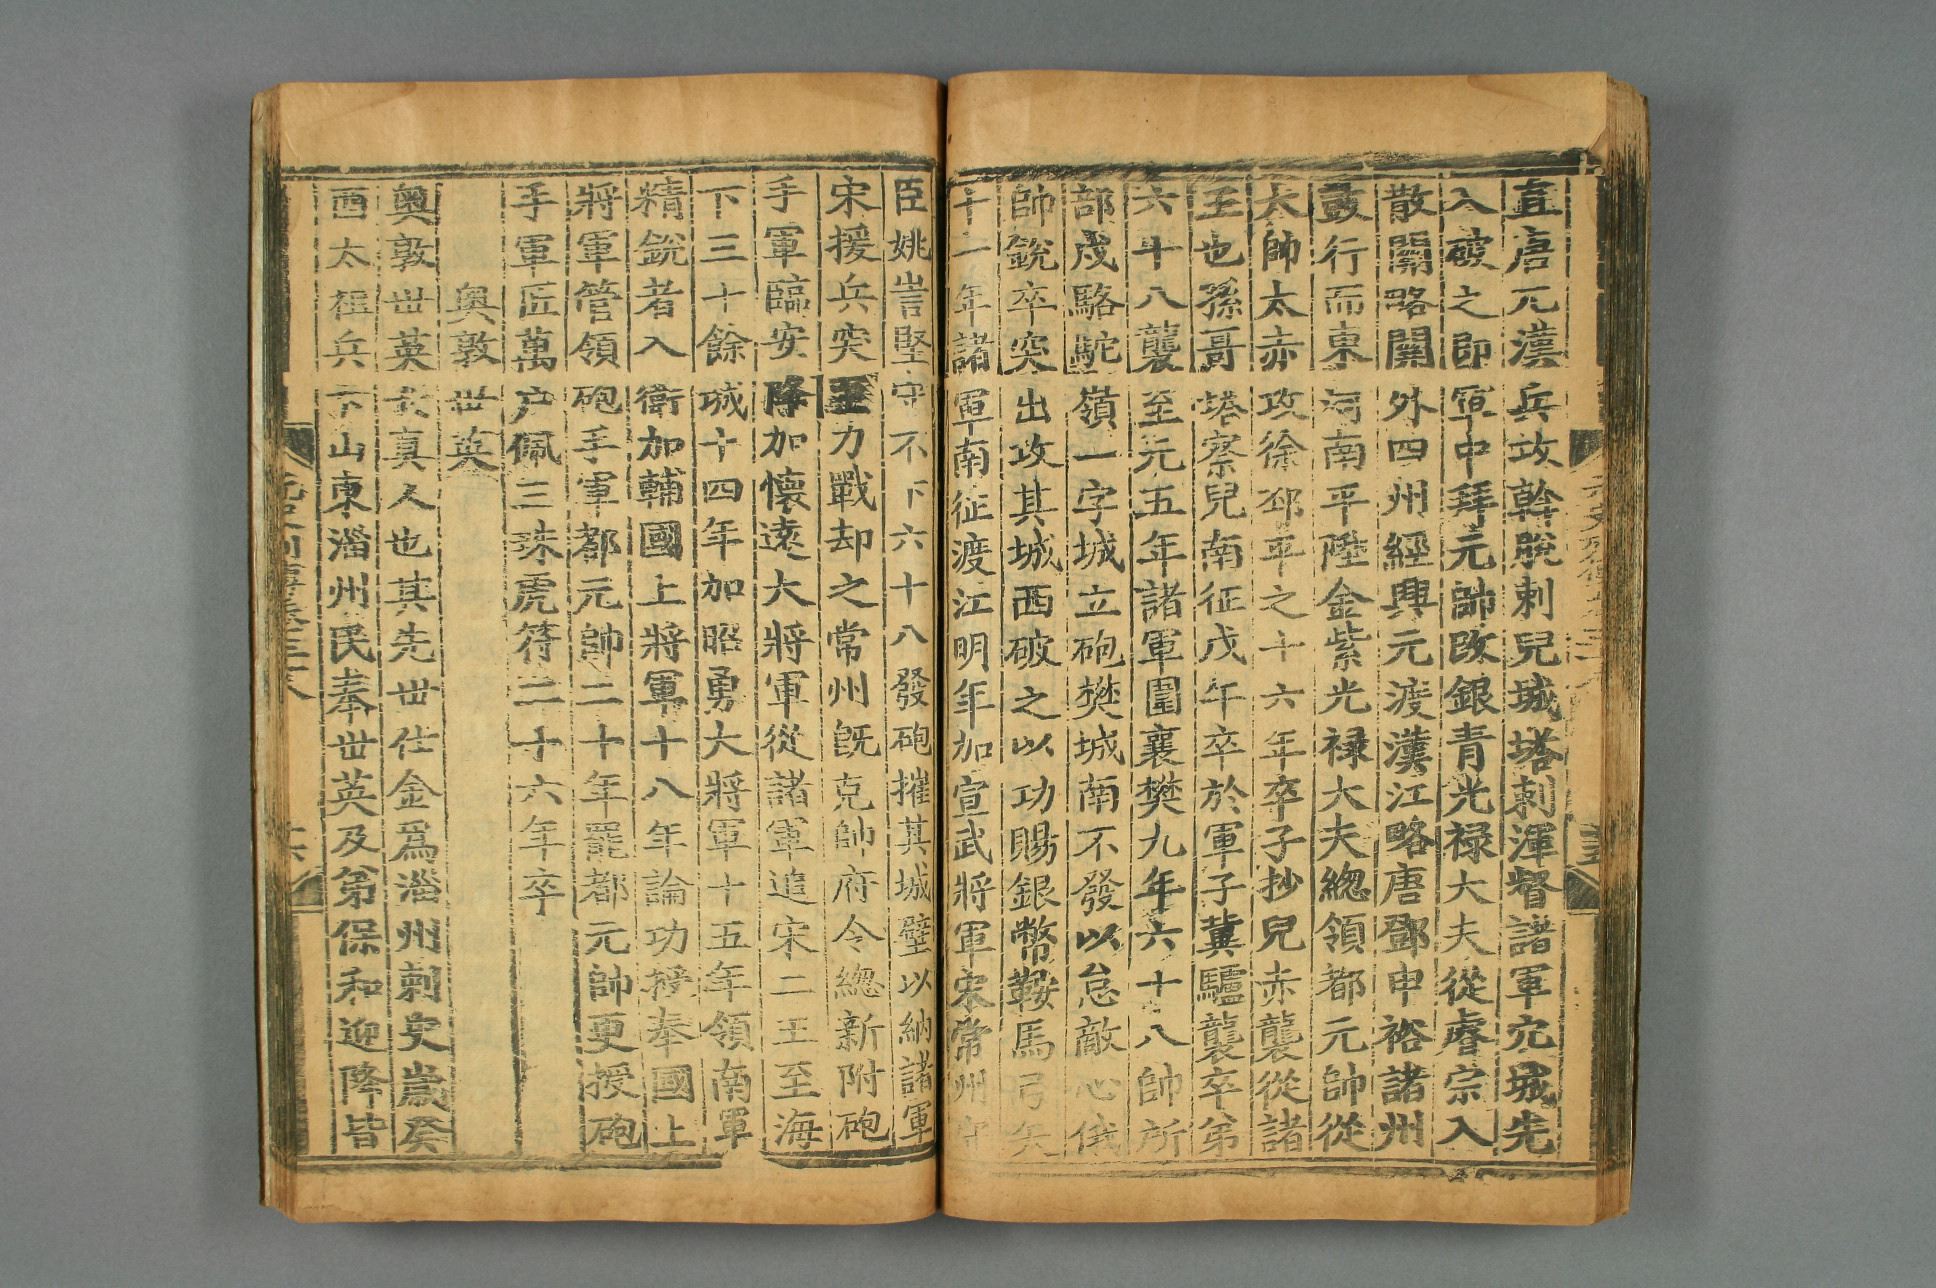 直唐兀漢兵攻斡脫剌兒城塔剌渾督諸軍穴城先
入破之即軍中拜元帥改銀青光祿大夫從睿宗入
散關略關外四州經興元渡漢江略唐鄧申裕諸州
鼓行而東河南平陞金紫光祿大夫總領都元帥從
大帥太赤攻徐邳平之十六年卒子抄兒赤襲從諸
王也孫哥塔察兒南征戊午卒於軍子冀驢襲卒弟
六十八襲至元五年諸軍圍襄樊九年六十八帥所
部戍駱駝嶺一字城立砲樊城南不發以怠敵心俄
帥銳卒突出攻其城西破之以功賜銀幣鞍馬弓矢
十二年諸軍南征渡江明年加宣武將軍宋常州守
臣姚訔堅守不下六十八發砲摧其城壁以納諸軍
宋援兵突至力戰却之常州旣克帥府令總新附砲
手軍臨安降加懷遠大將軍從諸軍追宋二王至海
下三十餘城十四年加昭勇大將軍十五年領南軍
精銳者入衛加輔國上將軍十八年論功授奉國上
將軍管領砲手軍都元帥二十年罷都元帥更授砲
手軍匠萬户佩三珠虎符二十六年卒
奧敦世英
奧敦世英女真人也其先世仕金爲淄州刺史歲癸
酉太祖兵下山東淄州民奉世英及弟保和迎降皆
元史列傳卷三十八
十六